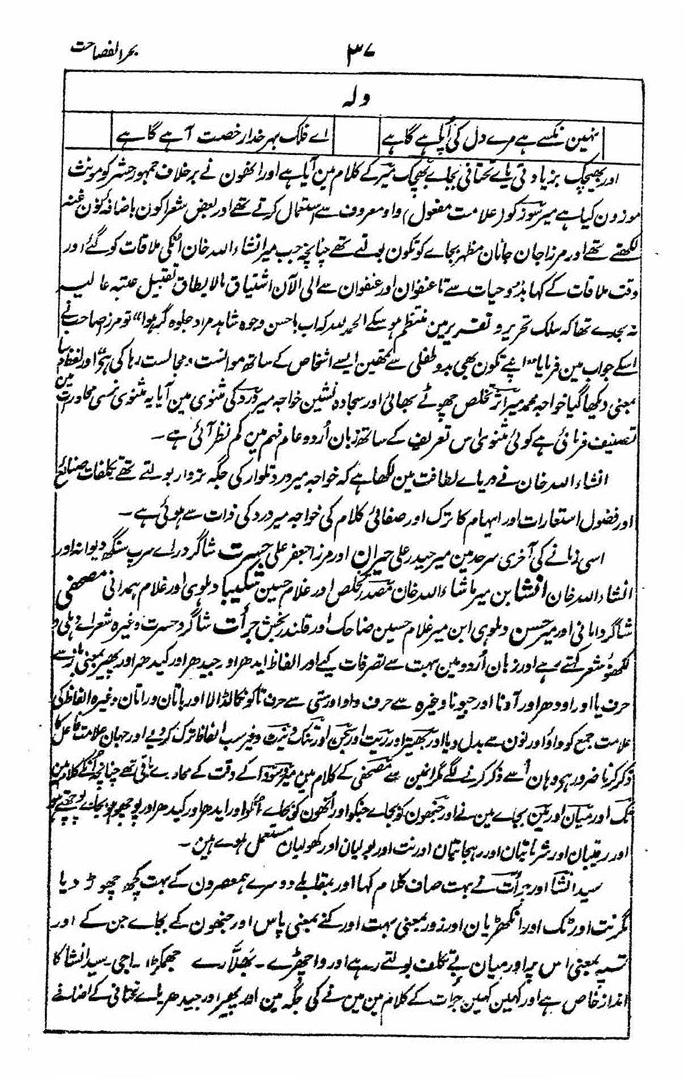 بحر الفصاحت
۳۷
ولہ
نہین نکسے ہے مرے دل کی اپاہے گاہے
اے فلک بہر خدا رخصت آہے گاہے
اور بھیچک بزیادتی یاے تحتانی بجاے بھچک میر کے کلام مین آیا ہے اور انھون نے برخلاف جمہور حشر کو مونث
موزون کیا ہے میر سوز کو (علامت مفعول) واو معروف سے استعمال کرتے تھے اور بعض شعرا کون باضافہ نون غنہ
لکھتے تھے اور مرزا جان جانان مظہر بجاے کو تکون بولتے تھے چنانچہ جب میر انشاء اللہ خان انکی ملاقات کو گئے اور
وقت ملاقات کے کہا بدو حیات سے تا عنفوان اور عنفوان سے الی الآن اشتیاق مالایطاق تقبیل عتبہ عالیہ
نہ بحدے تھا کہ سلک تحریر و تقریر مین منتظم ہو سکے الحمد للہ کہ اب باحسن وجوہ شاہد مراد جلوہ گر ہوا" تو مرزا صاحب نے
اسکے جواب مین فرمایا "اپنے تکون بھی بدو طفلی سے تمھین ایسے اشخاص کے ساتھ موانست و مجالست رہا کی ہے" اور لفظ
بمعنی دکھا گیا خواجہ محمد میر اثر تخلص چھوٹے بھائی اور سجادہ نشین خواجہ میر درد کی مثنوی مین آیا یہ مثنوی نسی محاورات مین
تصنیف فرمائی ہے کوئی مثنوی اس تعریف کے ساتھ زبان اردو عام فہم مین کم نظر آئی ہے۔
انشاء اللہ خان نے دریاے لطافت مین لکھا ہے کہ خواجہ میر درد تلوار کی جگہ تروار بولتے تھے تکلفات صنائع
اور فضول استعارات اور ایہام کا ترک اور صفائی کلام کی خواجہ میر درد کی ذات سے ہوئی ہے۔
اسی زمانے کی آخری سرحد مین میر حیدر علی حیران اور مرزا جعفر علی حسرت شاگرد راے سرپ سنگھ دیوانہ اور
انشاء اللہ خان انشا بن میر ماشاء اللہ خان مصدر تخلص اور غلام حسین شکیبا دہلوی اور غلام ہمدانی مصحفی
شاگرد امانی اور میر حسن دہلوی ابن میر غلام حسین ضاحک اور قلندر بخش جرأت شاگرد حسرت وغیرہ شعراے دہلی و
لکھنؤ شعر کہتے رہے اور زبان اردو مین بہت سے تصرفات کیے اور الفاظ ایدھر اور جیدھر اور کیدھر اور پھیر بمعنی باز سے
حرف یا اور اودھر اور آونا اور جیونا وغیرہ سے حرف واو اور ستی سے حرف تا کو نکال ڈالا اور باتان ورانان وغیرہ الفاظ کی
علامت جمع کو واو اور نون سے بدل دیا اور بھیتر اور ریت اور سجن اور تنک و نت وغیرہ سب الفاظ ترک کر دیے اور جہان علامت فاعل کا
ذکر کرنا ضرور ہے وہان اُسے ذکر کرنے لگے مگر انمین سے مصحفی کے کلام مین میر و سودا کے وقت کے محاورے باقی تھے چنانچہ انکے کلام مین
تک اور میان اور تین بجاے مین نے اور جنھون کو بجاے جنکو اور انھون کو بجاے انکو اور ایدھر اور کیدھر اور پوچھو ہو بجاے پوچھتے ہو
اور رہتیان اور شرماتیان اور رہجاتیان اور نت اور بولیان اور کھولیان مستعمل ہوے ہین۔
سید انشا اور جرأت نے بہت صاف کلام کہا اور بمقابلے دوسرے ہمعصرون کے بہت کچھ چھوڑ دیا
مگر نت اور ٹک اور انکھڑیان اور زور بمعنی بہت اور کنے بمعنی پاس اور جنھون کے بجاے جن کے اور
تسپہ بمعنی اس پر اور میان بے تکلف بولتے رہے اور واچھڑے۔ بھلا رے۔ جھمکڑا۔ اجی۔ سید انشا کا
انداز خاص ہے اور کہین کہین جرأت کے کلام مین مین نے کی جگہ مین اور پھیر اور جیدھر یاے تحتانی کے اضافے